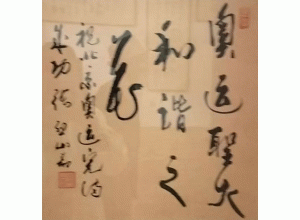 奥运聖火
和谐之
花
祝北京奥运完满
成功